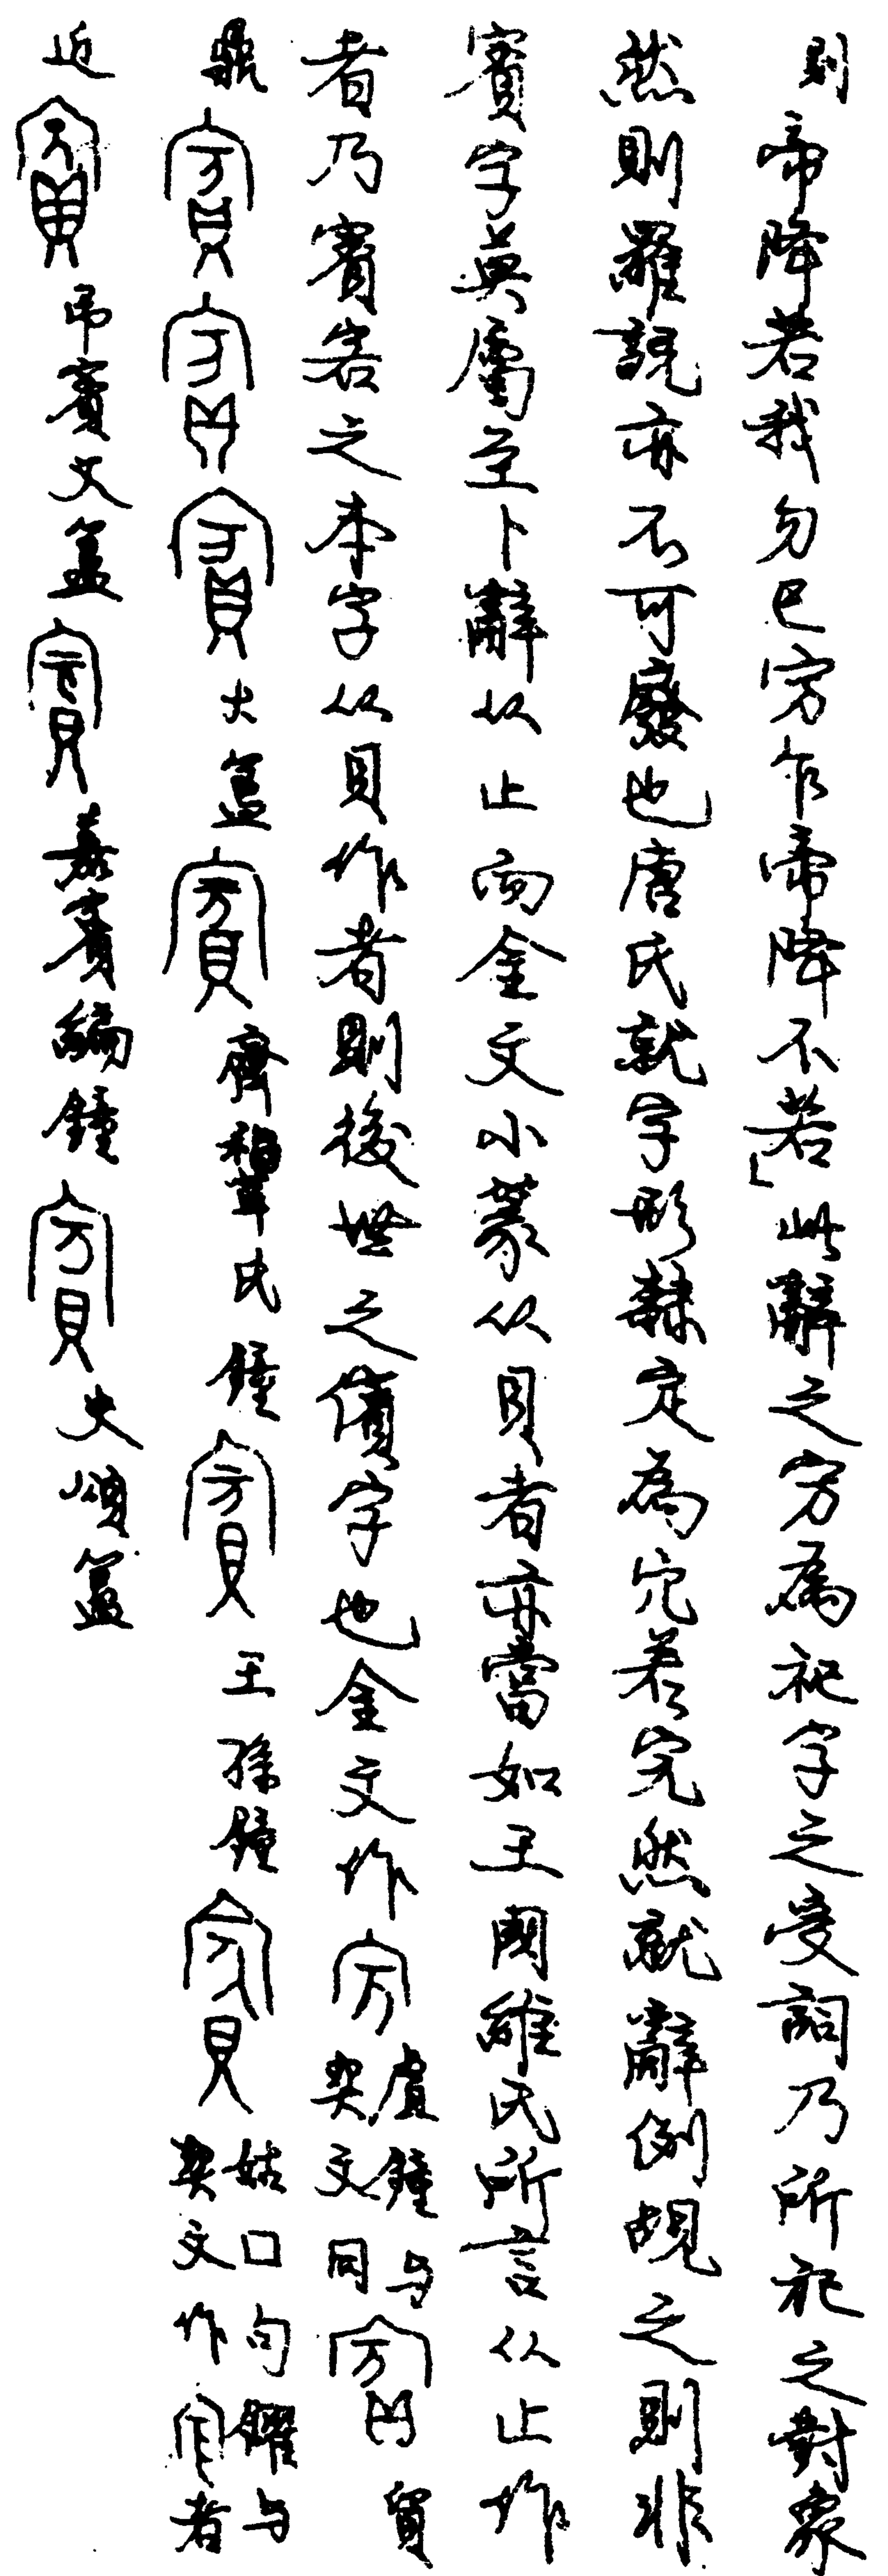 則帝降若我勿巳乍帝降不若」此辭之為祀字之受詞乃所祀之對象
然則羅說亦不可廢也唐氏就字形隸定為宂若完然就辭例覘之則非
賓字莫屬至卜辭从止而金文小篆从貝者亦當如王國維氏所言从止作
者乃賓客之本字从貝作者則後世之儐字也金文作 虘鐘与契文同 貿
鼎 大簋 齊氏鐘 王孫鐘 姑口句鑃与契文作 者
近 弔賓父簋 嘉賓編鐘 史頌簋